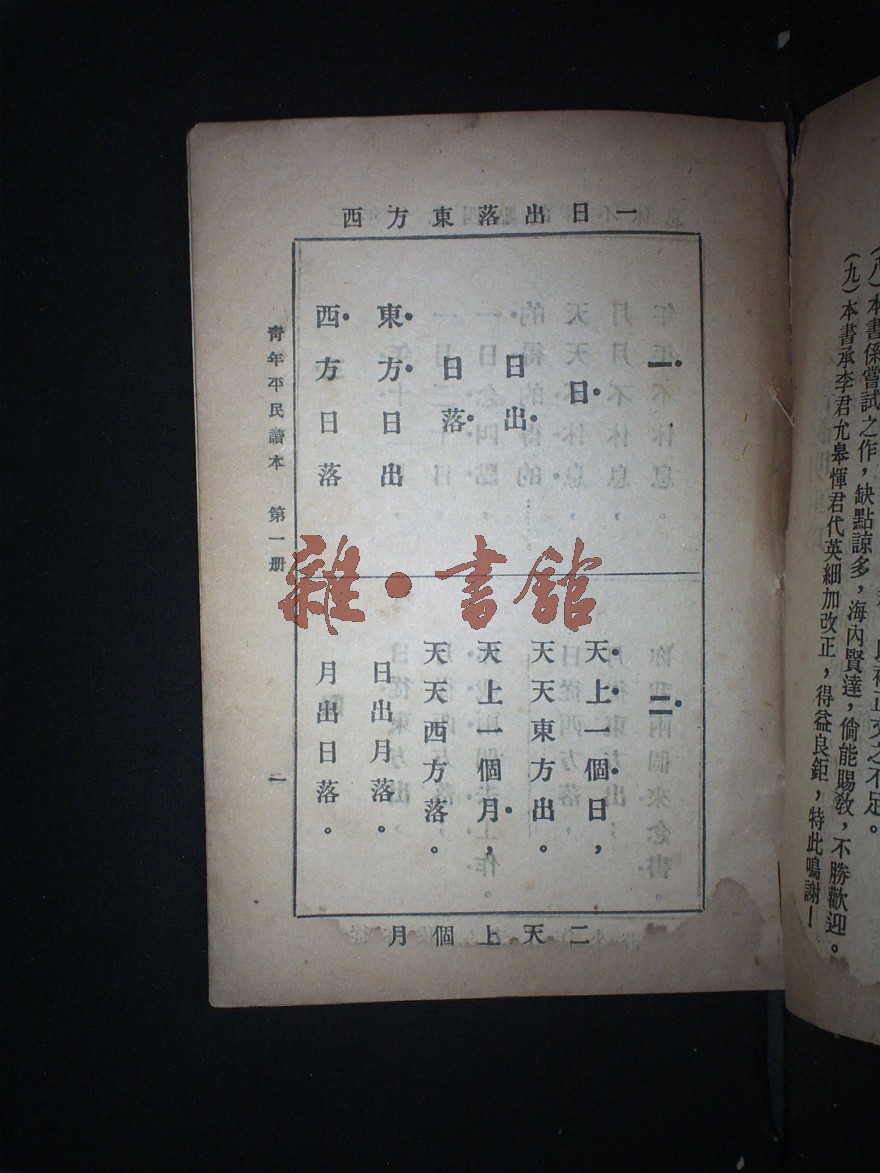 一日出落東方西
一
日
日出
日落
東方日出
西方日落
二
天上一個日，
天天東方出。
天上一個月，
天天西方落。
日出月落。
月出日落。
二天上個月
青年平民讀本 第一册
一
雜·書館
（八）本書係嘗試之作，缺點諒多，海內賢達，倘能賜教，不勝歡迎。
（九）本書承李君允皋惲君代英細加改正，得益良鉅，特此鳴謝！
之不足。